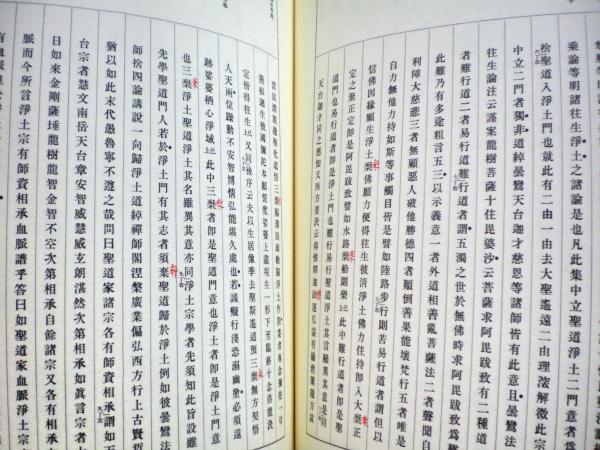 乘論等明諸往生淨土之諸論是也凡此集中立聖道淨土二門意者
捨聖道入淨土門也就此有二由一由去大聖遙遠二由理深解微此宗
中立二門者獨非道綽曇鸞天台迦才慈恩等諸師皆有此意且曇鸞法
往生論注云謹案龍樹菩薩十住毘婆沙云菩薩求阿毘跋致有二種道
者難行道二者易行道難行道者謂五濁之世於無佛時求阿毘跋致爲難
此難乃有多途粗言五三以示義意一者外道相善亂菩薩法二者聲聞自
利障大慈悲三者無顧惡人破他勝德四者顛倒善果能壞梵行五者唯是
自力無他力持如斯等事觸目皆是譬如陸路步行則苦易行道者謂但以
信佛因緣願生淨土乘佛願力便得往生彼淸淨土佛力住持即入大乘正
定之聚正定即是阿毘跋致譬如水路乘船則樂已上此中難行道者即是聖
道門也易行道者即是淨土門也難行易行聖道淨土其言雖異其意是同
天台迦才同之應知又西方要決云仰惟釋迦啓運弘益有緣敎闡隨方並
霑法潤親逢聖化道悟三乘福薄因疎勸歸淨土作斯業者專念彌陀一切
善根迴生彼國彌陀本願誓度娑婆上盡現生一形下至臨終十念俱能決
定皆得往生已上又同後序云夫以生居像季去聖斯遙道預三乘無方契悟
人天兩位躁動不安智博情弘能堪久處也若識癡行淺恐溺幽塗必須遠
跡娑婆栖心淨域已上此中三乘者即是聖道門意也淨土者即是淨土門意
也三乘淨土聖道淨土其名雖異其意亦同淨土宗學者先須知此旨設雖
先學聖道門人若於淨土門有其志者須棄聖道歸於淨土例如彼曇鸞法
師捨四論講說一向歸淨土道綽禪師閣涅槃廣業偏弘西方行上古賢哲
猶以如此末代愚魯寧不遵之哉問曰聖道家諸宗各有師資相承謂如天
台宗者慧文南岳天台章安智威慧威玄朗湛然次第相承如眞言宗者大
日如來金剛薩埵龍樹龍智金智不空次第相承自餘諸宗又各有相承
脈而今所言淨土宗有師資相承血脈譜乎答曰如聖道家血脈淨土